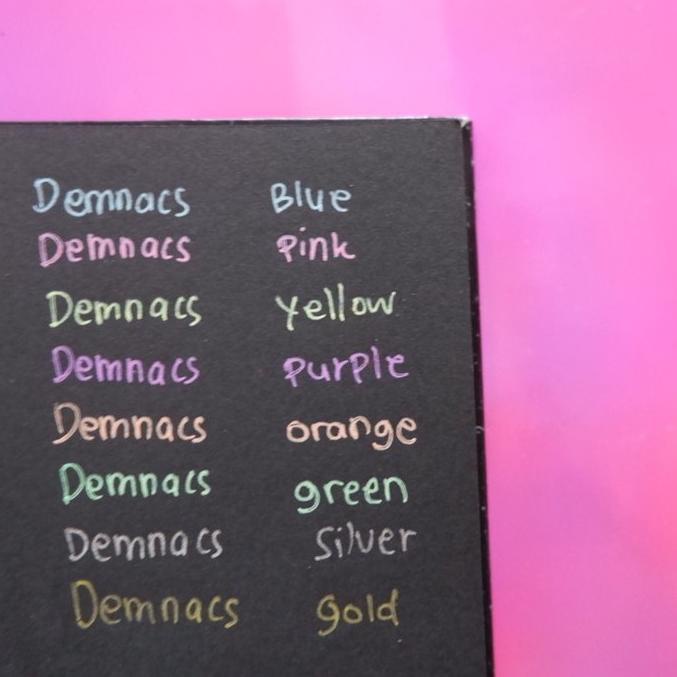 Demnacs Blue
Demnacs Pink
Demnacs Yellow
Demnacs purple
Demnacs orange
Demnacs green
Demnacs Silver
Demnacs gold